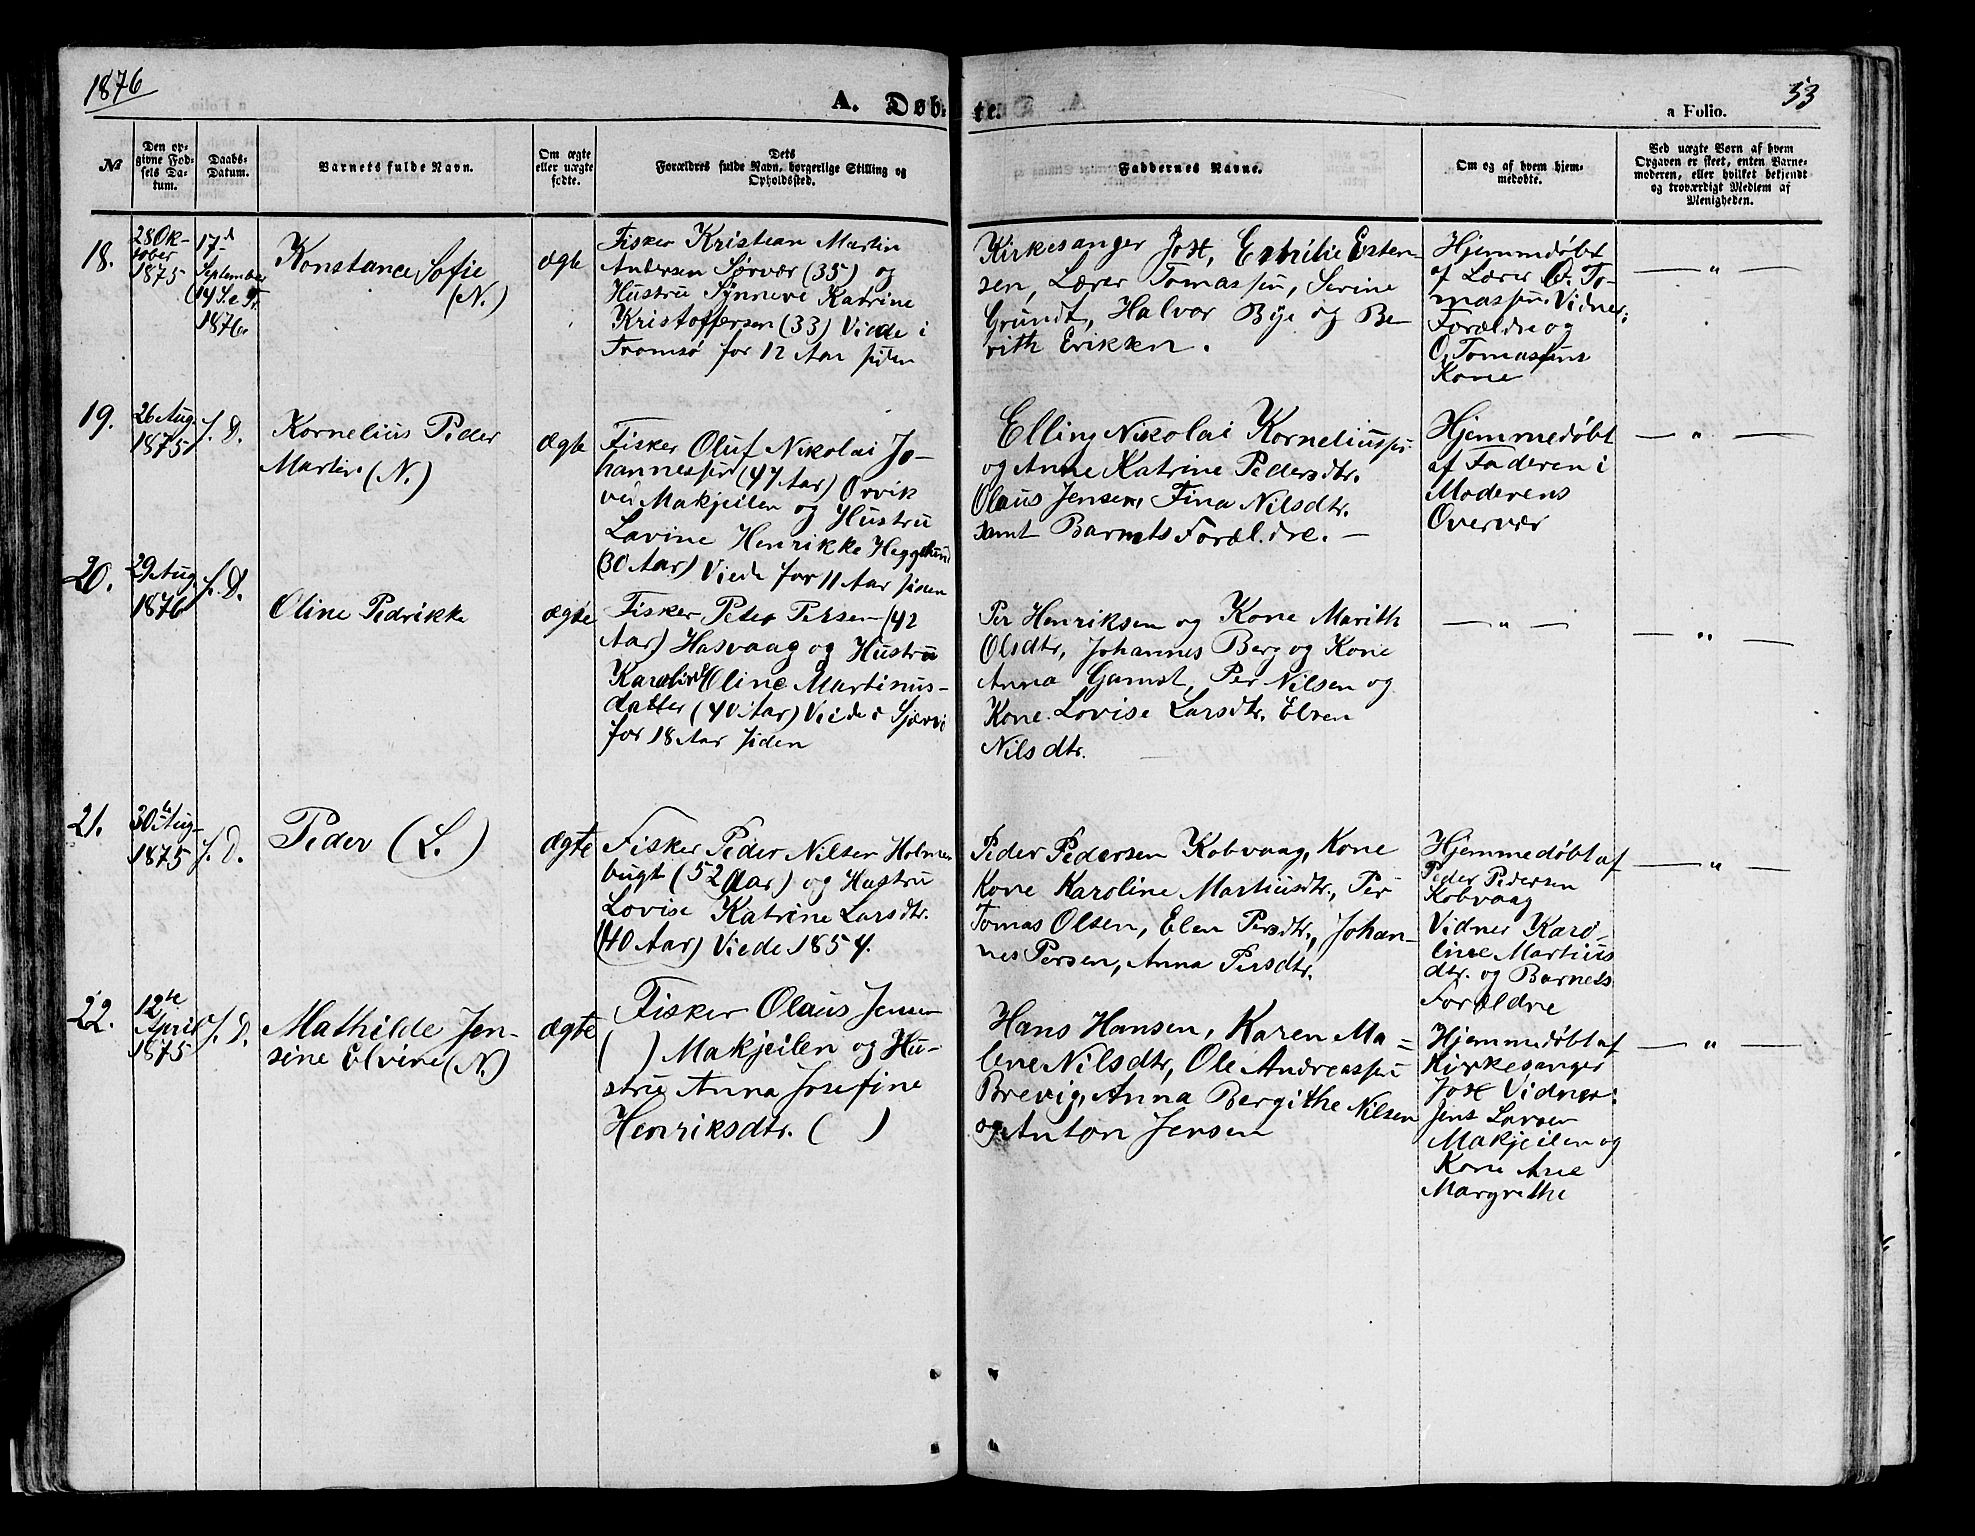 1876
A. Døb-
te.
a Folio.
53
№
Den op-
givne Fød-
sels Da-
tum.
Daabs-
Datum.
Barnets fulde Navn.
Om ægte
eller uægte
fødte.
Dets
Forældres fulde Navn, borgerlige Stilling og
Opholdssted.
Faddernes Navne.
Om og af hvem hjem-
medøbte.
Ved uægte Børn af hvem
Opgaven er skeet, enten Barne-
moderen, eller hvilket bekjendt
og troværdigt Medlem af
Menigheden.
18.
28 Ok-
tober
1875
17d
September
14 S. e. Tr.
1876.
Konstance Sofie
(N.)
ægte
Fisker Kristian Martin
Andersen Sørvær (35) og
Hustru Synneve Katrine
Kristoffersen (33) Viede i
Tromsø for 12 Aar siden
Kirkesanger Jost, Emilie Esten-
sen, Lærer Tomassen, Serine
Grundt, Halvor Bye og Be-
rith Erikken.
Hjemmedøbt
af Lærer O. To-
massen. Vidner:
Forældre og
O. Tomassens
Kone
— " —
19.
26 Aug.
1875
s. D.
Kornelius Peder
Martin (N.)
ægte
Fisker Oluf Nikolai Jo-
hannessen (47 Aar) Orvik
ved Makjeilen og Hustru
Lavine Henrikke Heggelund
(30 Aar) Viede for 11 Aar siden
Elling Nikolai Korneliussen
og Anne Katrine Pedersdtr.
Olaus Jensen, Fina Nilsdtr.
samt Barnets Forældre. —
Hjemmedøbt
af Faderen i
Moderens
Overvær
— " —
20.
29 Aug.
1876
s. D.
Oline Pedrikke
ægte
Fisker Peter Persen (42
Aar) Hasvaag og Hustru
Karoline Oline Martinus-
datter (40 Aar) Viede i
for 18 Aar siden
Per Henriksen og Kone Marith
Olsdtr, Johannes Berg og Kone
Anna Gamst, Per Nilsen og
Kone Lovise Larsdtr. Elen
Nilsdtr.
— " —
— " —
21.
30te Aug
1875
s. D.
Peder (L.)
ægte
Fisker Peder Nilsen Holmen
bugt (52 Aar) og Hustru
Lovise Katrine Larsdtr.
(40 Aar) Viede 1854.
Peder Pedersen Kobvaag, Kone
Kone Karoline Martiusdtr., Per
Tomas Olsen, Elen Persdtr., Johan-
nes Persen, Anna Persdtr.
Hjemmedøbt af
Peder Pedersen
Kobvaag
Vidner Karo-
line Martius
dtr. og Barnets
Forældre
— " —
22.
12te
April
1875
s. D.
Mathilde Jen-
sine Elvine (N.)
ægte
Fisker Olaus Jensen
( ) Makjeilen og Hu-
stru Anna Josefine
Henriksdtr. ( )
Hans Hansen, Karen Ma-
lene Nilsdtr, Ole Andreassen
Brevig, Anna Bergithe Nilsen
og Anton Jensen
Hjemmedøbt af
Kirkesanger
Jost Vidner:
Jens Larsen
Makjeilen og
Kone Ane
Margrethe
— " —